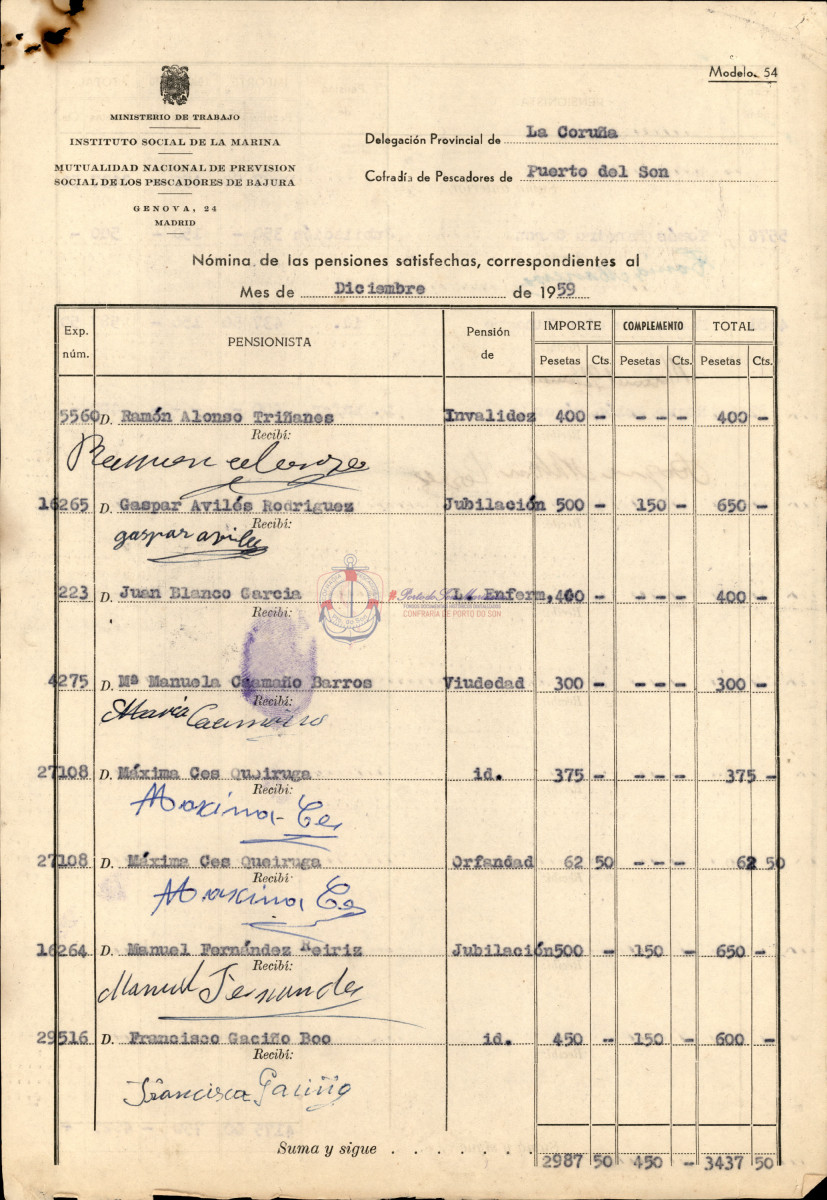 Modelo. 54
MINISTERIO DE TRABAJO
INSTITUTO SOCIAL DE LA MARINA
MUTUALIDAD NACIONAL DE PREVISION
SOCIAL DE LOS PESCADORES DE BAJURA
GENOVA, 24
MADRID
Delegación Provincial de La Coruña
Cofradía de Pescadores de Puerto del Son
Nómina de las pensiones satisfechas, correspondientes al
Mes de Diciembre de 1959
Exp. núm. PENSIONISTA Pensión de IMPORTE COMPLEMENTO TOTAL
Pesetas Cts. Pesetas Cts. Pesetas Cts.
5560 D. Ramón Alonso Triñanes Invalidez 400 - - - - 400 -
Recibí:
Ramon alonso
16265 D. Gaspar Avilés Rodriguez Jubilación 500 - 150 - 650 -
Recibí:
gaspar aviles
223 D. Juan Blanco Garcia L. Enferm. 400 - - - - 400 -
Recibí:
CONFRARIA DE PORTO DO SON
4275 D. Mª Manuela Caamaño Barros Viudedad 300 - - - - 300 -
Recibí:
María Caamaño
27108 D. Máxima Ces Queiruga id. 375 - - - - 375 -
Recibí:
Maxima Ces
27108 D. Máxima Ces Queiruga Orfandad 62 50 - - - 62 50
Recibí:
Maxima Ces
16264 D. Manuel Fernández Reiriz Jubilación 500 - 150 - 650 -
Recibí:
Manuel Fernandez
29516 D. Francisco Gaciño Boo id. 450 - 150 - 600 -
Recibí:
Francisca Gaciño
Suma y sigue . . . . . . . 2987 50 450 - 3437 50